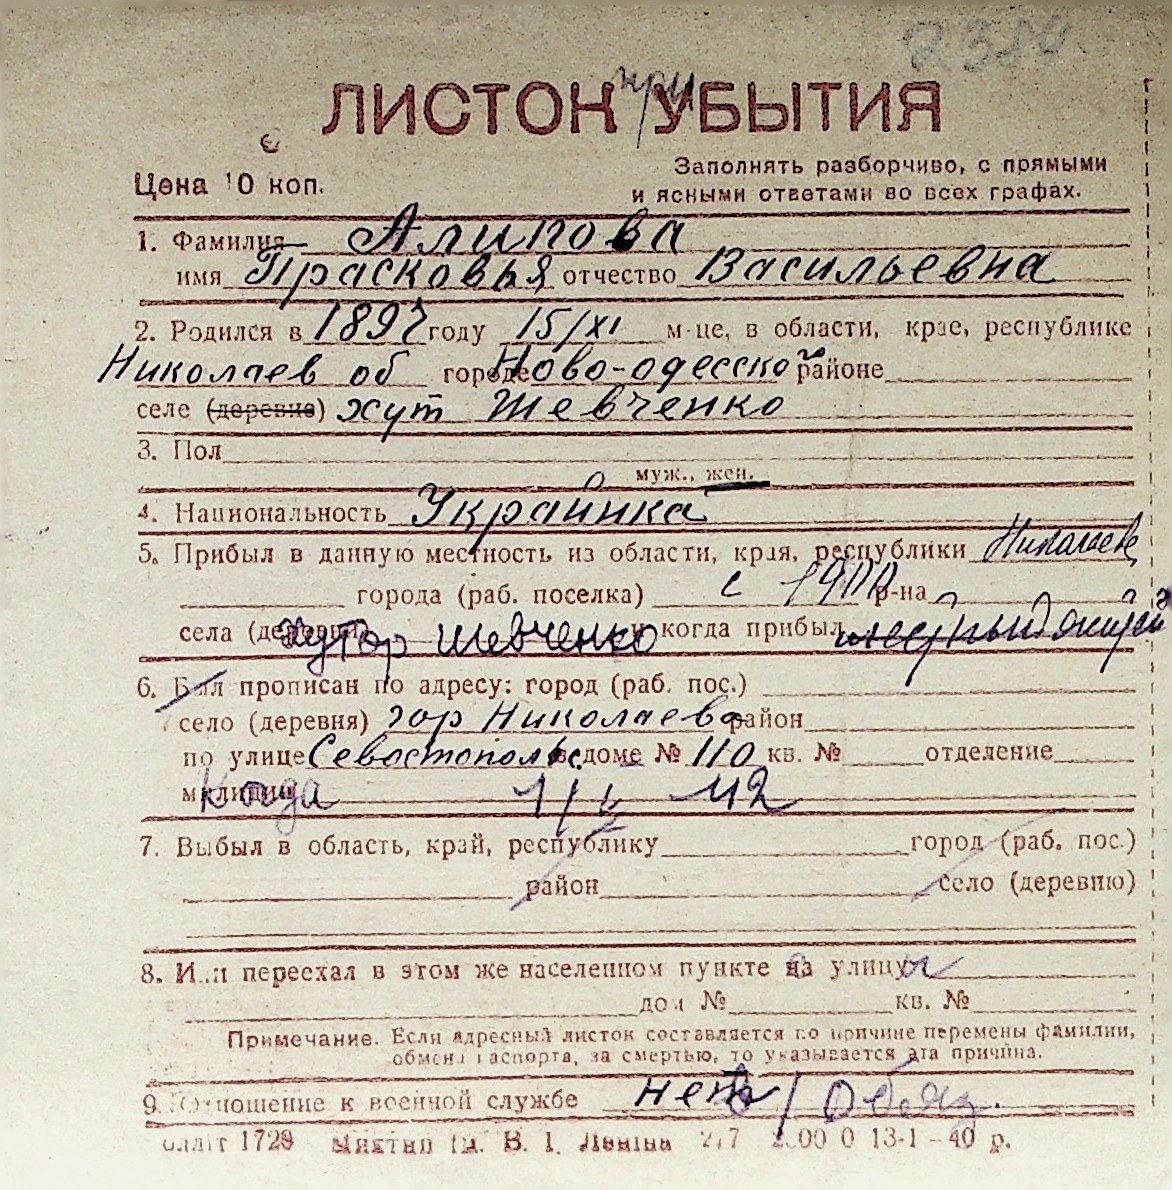 ЛИСТОК при УБЫТИЯ
Цена 10 коп.
Заполнять разборчиво, с прямыми
и ясными ответами во всех графах.
1. Фамилия Алипова
имя Прасковья отчество Васильевна
2. Родился в 1897 году 15/XI м-це, в области, крае, республике
Николаев об городе Ново-одесско районе
селе (деревне) хут Шевченко
3. Пол
муж., жен.
4. Национальность Украинка
5. Прибыл в данную местность из области, края, республики Николаев
города (раб. поселка) с р-на
села (деревни) хутор Шевченко и когда прибыл
6. Был прописан по адресу: город (раб. пос.)
село (деревня) гор Николаев район
по улице Севастопольс в доме № 110 кв. № отделение
милиции Когда
7. Выбыл в область, край, республику город (раб. пос.)
район село (деревню)
8. Или переехал в этом же населенном пункте на улицу
дом № кв. №
Примечание. Если адресный листок составляется по причине перемены фамилии,
обмена паспорта, за смертью, то указывается эта причина.
9. Отношение к военной службе нет / Обяз.
1728 В. І. Леніна 13-1-40 р.